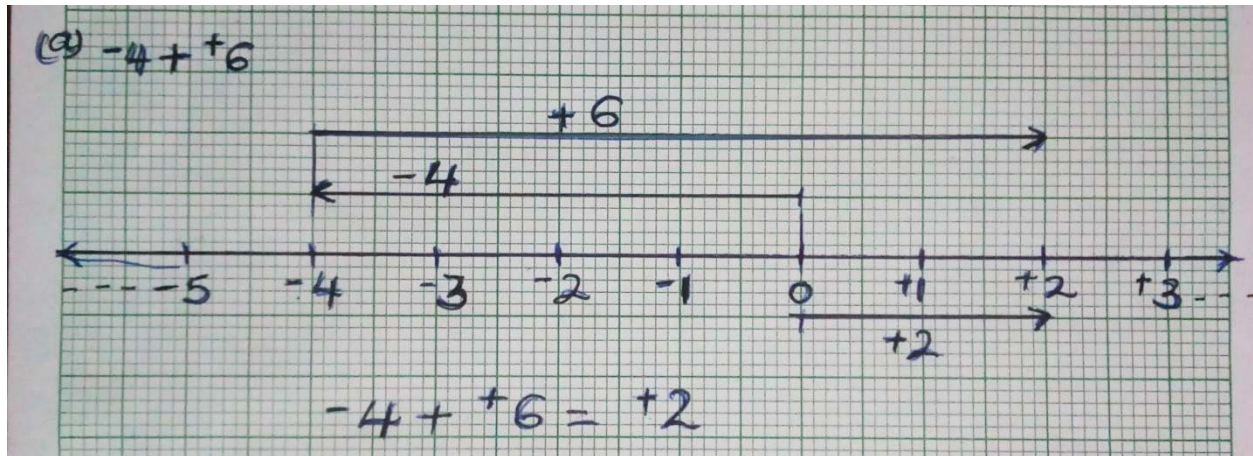 (a) -4 + +6
+6
-4
---- -5 -4 -3 -2 -1 0 +1 +2 +3 ---
+2
-4 + +6 = +2